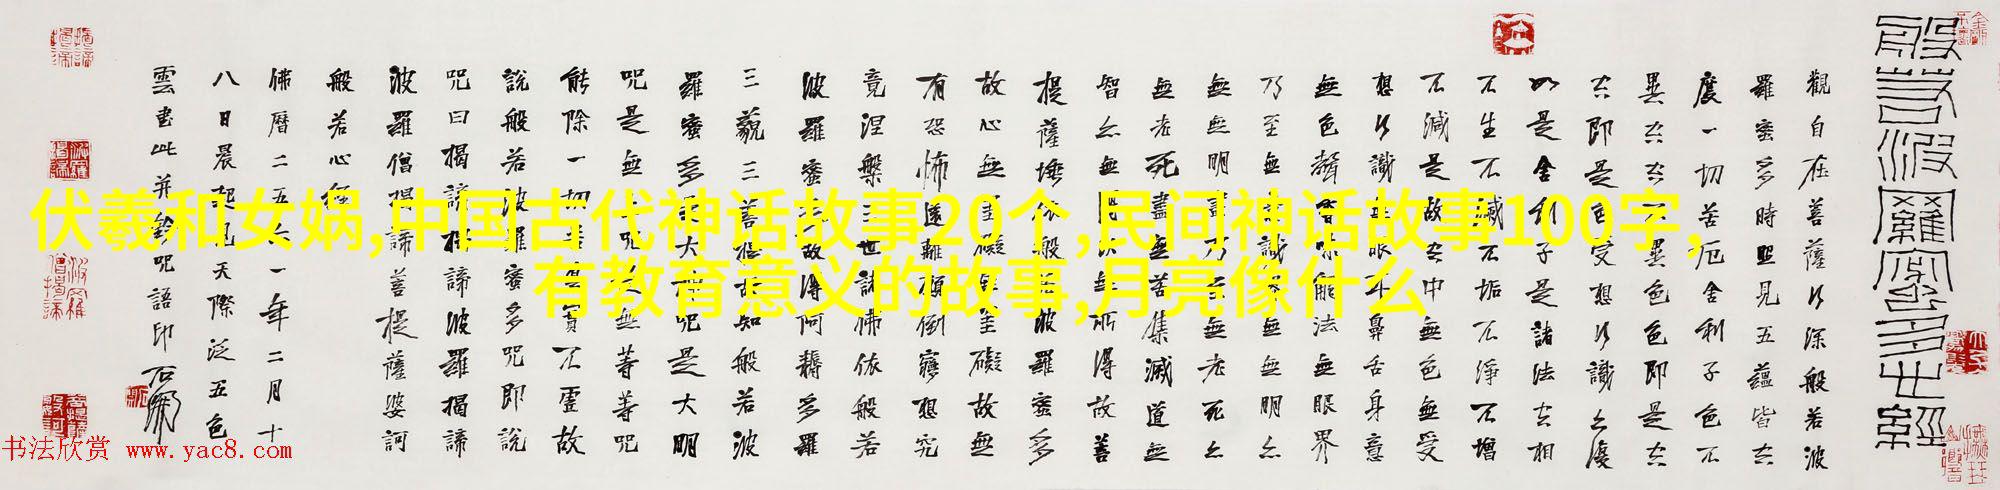 般若波羅蜜多心經
觀自在菩薩行深般若波
羅蜜多時照見五蘊皆空
度一切苦厄舍利子色不
異空空不異色色即是空
空即是色受想行識亦復
如是舍利子是諸法空相
不生不滅不垢不淨不增
不減是故空中無色無受
想行識無眼耳鼻舌身意
無色聲香味觸法無眼界
乃至無意識界無無明亦
無無明盡乃至無老死亦
無老死盡無苦集滅道無
智亦無得以無所得故菩
提薩埵依般若波羅蜜多
故心無罣礙無罣礙故無
有恐怖遠離顛倒夢想究
竟涅槃三世諸佛依般若
波羅蜜多故得阿耨多羅
三藐三菩提故知般若波
羅蜜多是大神咒是大明
咒是無上咒是無等等咒
能除一切苦真實不虛故
說般若波羅蜜多咒即說
咒曰揭諦揭諦波羅揭諦
波羅僧揭諦菩提薩婆訶
般若心經
佛曆二五六一年二月十
八日晨起見天際泛五色
雲書此并鈐咒語印
伏羲和女娲,中国古代神话故事20个,民间神话故事100字,
有教育意义的故事,月亮像什么
书法欣赏 www.yac8.com